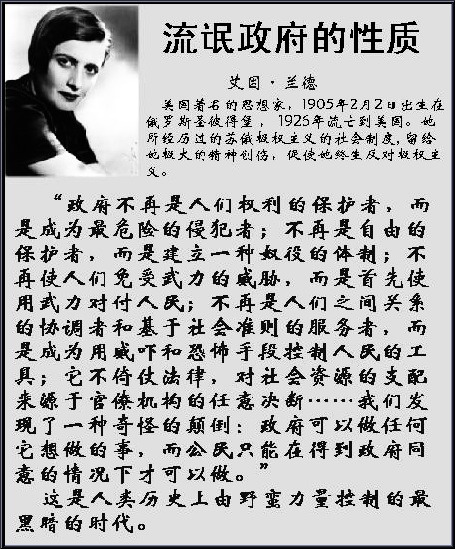 流氓政府的性质
艾因·兰德
美国著名的思想家,1905年2月2日出生在
俄罗斯圣彼得堡,1926年流亡到美国。她
所经历过的苏俄极权主义的社会制度,留给
她极大的精神创伤,促使她终生反对极权主
义。
“政府不再是人们权利的保护者,而
是成为最危险的侵犯者;不再是自由的
保护者,而是建立一种奴役的体制;不
再使人们免受武力的威胁,而是首先使
用武力对付人民;不再是人们之间关系
的协调者和基于社会准则的服务者,而
是成为用威吓和恐怖手段控制人民的工
具;它不倚仗法律,对社会资源的支配
来源于官僚机构的任意决断……我们发
现了一种奇怪的颠倒:政府可以做任何
它想做的事,而公民只能在得到政府同
意的情况下才可以做。”
这是人类历史上由野蛮力量控制的最
黑暗的时代。